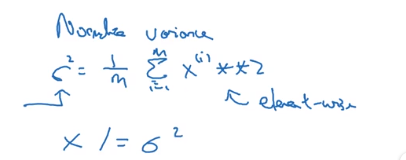 Normalize variance
σ² = 1/m Σ_{i=1}^{m} x^{(i)} **2
element-wise
x /= σ²